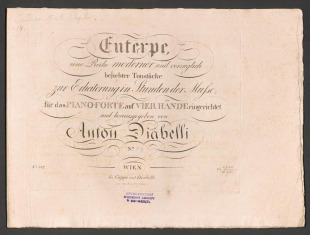 Euterpe,
eine Reihe moderner und vorzüglich
beliebter Tonstücke
zur Erheiterung in Stunden der Muße,
für das PIANO-FORTE auf VIER HÄNDE eingerichtet
und herausgegeben von
Anton Diabelli
No.
WIEN